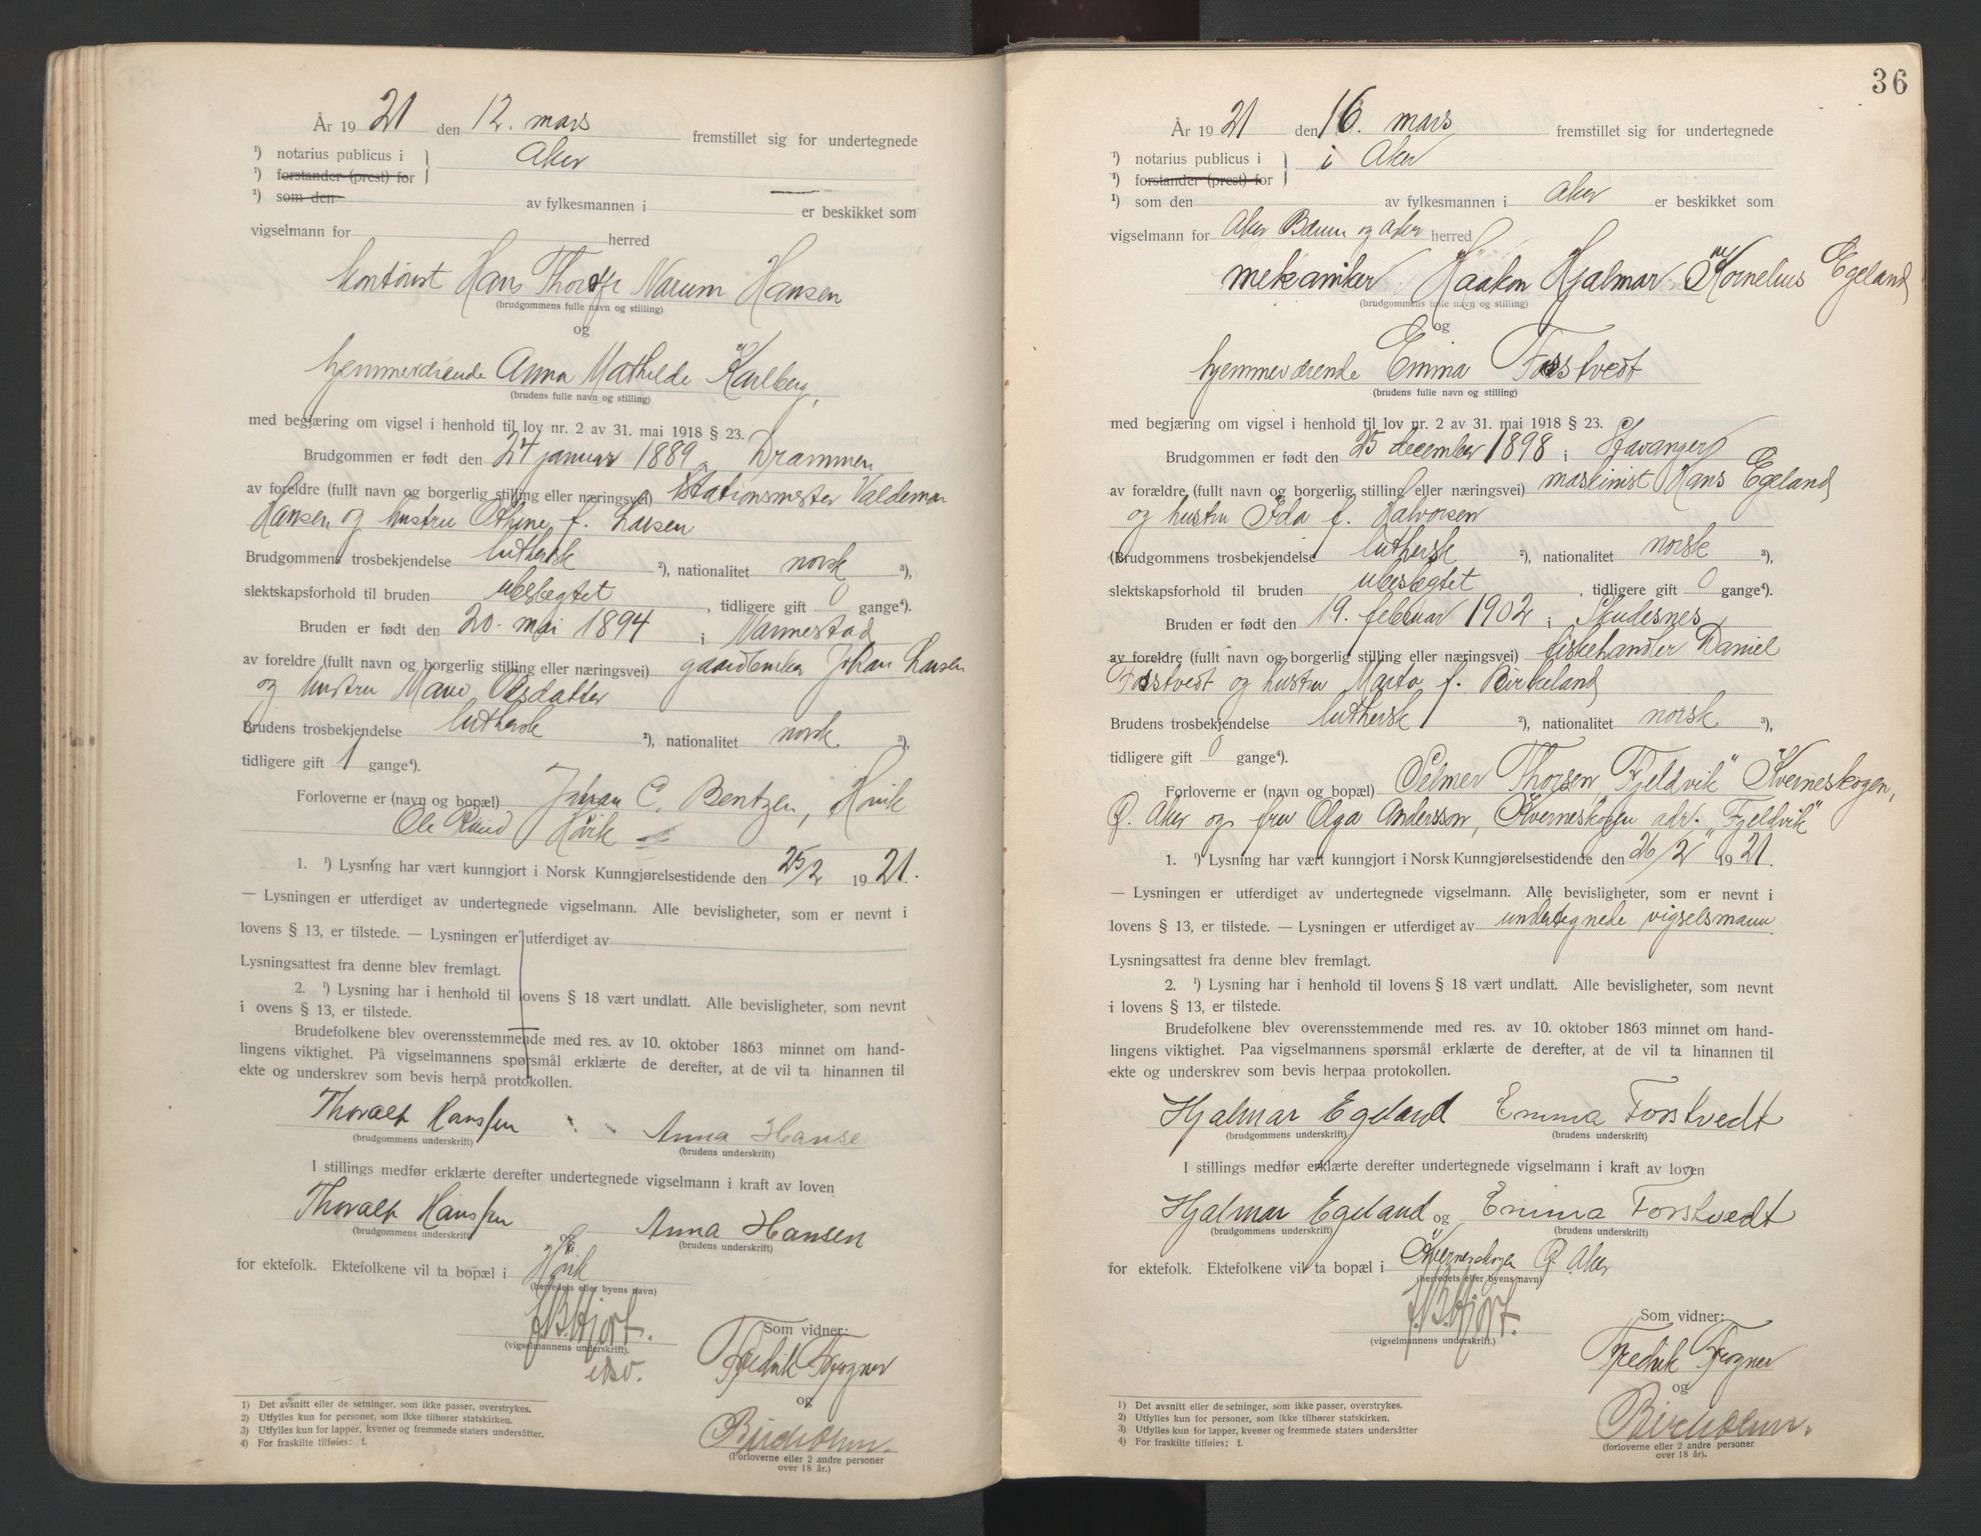 År 1921 den 12. mars fremstillet sig for undertegnede
¹) notarius publicus i Aker
¹) forstander (prest) for
¹) som den av fylkesmannen i — er beskikket som
vigselmann for herred
kontorist Hans Thoralf Narum Hansen
(brudgommens fulle navn og stilling)
og
hjemmeværende Anna Mathilde Karlberg,
(brudens fulle navn og stilling)
med begjæring om vigsel i henhold til lov nr. 2 av 31. mai 1918 § 23.
Brudgommen er født den 24 januar 1889 i Drammen
av foreldre (fullt navn og borgerlig stilling eller næringsvei) stationsmester Valdemar
Hansen og hustru Othine f. Larsen
Brudgommens trosbekjendelse luthersk ²), nationalitet norsk ³),
slektskapsforhold til bruden ubeslegtet, tidligere gift 0 gange⁴).
Bruden er født den 20. mai 1894 i Vannestad
av foreldre (fullt navn og borgerlig stilling eller næringsvei) gaardbruker Johan Larsen
og hustru Marie
Brudens trosbekjendelse luthersk ²), nationalitet norsk ³),
tidligere gift 1 gange⁴).
Forloverne er (navn og bopæl) Johan C. Bentzen, Høvik
Ole Ruud Høvik
1. ¹) Lysning har vært kunngjort i Norsk Kunngjørelsestidende den 25/2 1921.
— Lysningen er utferdiget av undertegnede vigselmann. Alle bevisligheter, som er nevnt i
lovens § 13, er tilstede. — Lysningen er utferdiget av
Lysningsattest fra denne blev fremlagt.
2. ¹) Lysning har i henhold til lovens § 18 vært undlatt. Alle bevisligheter, som nevnt
i ovens § 13, er tilstede.
Brudefolkene blev overensstemmende med res. av 10. oktober 1863 minnet om hand-
lingens viktighet. På vigselmannens spørsmål erklærte de derefter, at de vil ta hinannen til
ekte og underskrev som bevis herpå protokollen.
Thoralf Hanssen Anna Hanse
(brudgommens underskrift) (brudens underskrift)
I stillings medfør erklærte derefter undertegnede vigselmann i kraft av loven
Thoralf Hanssen og Anna Hansen
(brudgommens underskrift) (brudens underskrift)
for ektefolk. Ektefolkene vil ta bopæl i Høvik
(herredets eller byens navn)
J.B.Hjort.
(vigselmannens underskrift).
Som vidner:
Fredrik Frogner
og
(Forloverne eller 2 andre personer
over 18 år.)
1) Det avsnitt eller de setninger, som ikke passer, overstrykes.
2) Utfylles kun for personer, som ikke tilhører statskirken.
3) Utfylles kun for lapper, kvener og fremmede staters undersåtter.
4) For fraskilte tilføies: f.
36
År 1921 den 16. mars fremstillet sig for undertegnede
¹) notarius publicus i i Aker
¹) forstander (prest) for
¹) som den av fylkesmannen i Aker er beskikket som
vigselmann for Aker Bærum og Asker herred
mekaniker Haakon Hjalmar Kornelius Egeland
(brudgommens fulle navn og stilling)
og
hjemmeværende Emma Forstvedt
(brudens fulle navn og stilling)
med begjæring om vigsel i henhold til lov nr. 2 av 31. mai 1918 § 23.
Brudgommen er født den 25 december 1898 i Stavanger
av forældre (fullt navn og borgerlig stilling eller næringsvei) maskinist Hans Egeland
og hustru Ida f. Halvorsen
(Brudgommens trosbekjendelse luthersk ²), nationalitet norsk ³),
slektskapsforhold til bruden ubeslegtet, tidligere gift 0 gange⁴).
Bruden er født den 19. februar 1902 i Skudesnes
av foreldre (fullt navn og borgerlig stilling eller næringsvei) fiskehandler Daniel
Forstvedt og hustru Marta f. Birkeland
Brudens trosbekjendelse luthersk ²), nationalitet norsk ³),
tidligere gift 0 gange⁴).
Forloverne er (navn og bopæl) Selmer Thorsen, "Fjeldvik" Kverneskogen,
Ø. Aker og fru Olga Andersson, Kverneskogen adr. "Fjeldvik"
1. ¹) Lysning har vært kunngjort i Norsk Kunngjørelsestidende den 26/2 1921.
— Lysningen er utferdiget av undertegnede vigselmann. Alle bevisligheter, som er nevnt i
lovens § 13, er tilstede. — Lysningen er utferdiget av undertegnede vigselsmann.
Lysningsattest fra denne blev fremlagt.
2. ¹) Lysning har i henhold til lovens § 18 vært undlatt. Alle bevisligheter, som nevnt
i lovens § 13, er tilstede.
Brudefolkene blev overensstemmende med res. av 10. oktober 1863 minnet om hand-
lingens viktighet. Paa vigselmannens spørsmål erklærte de derefter, at de vil ta hinannen til
ekte og underskrev som bevis herpaa protokollen.
Hjalmar Egeland Emma Forstvedt
(brudgommens underskrift) (brudens underskrift)
I stillings medfør erklærte derefter undertegnede vigselmann i kraft av loven
Hjalmar Egeland og Emma Forstvedt
(brudgommens underskrift) (brudens underskrift)
for ektefolk. Ektefolkene vil ta bopæl i Kverneskogen Ø. Aker
(herredets eller byens navn)
J.B.Hjort.
(vigselmannens underskrift.)
Som vidner:
Fredrik Frogner
og
(forloverne eller 2 andre personer
over 18 år).
1) Det avsnitt eller de setninger, som ikke passer, overstrykes.
2) Utfylles kun for personer, som ikke tilhører statskirken.
3) Utfylles kun for lapper, kvener og fremmede staters undersåtter
4) For fraskilte tilføies: f.